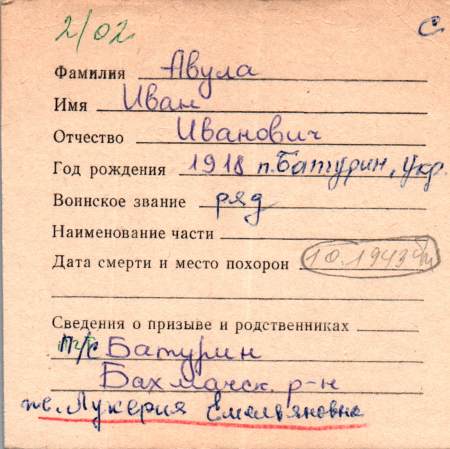 2/02 С
Фамилия Авула
Имя Иван
Отчество Иванович
Год рождения 1918 п. Батурин, Укр.
Воинское звание ряд
Наименование части
Дата смерти и место похорон 10.1943
Сведения о призыве и родственниках
Батурин
Бахмачск. р-н
ж. Лукерия Емельяновна